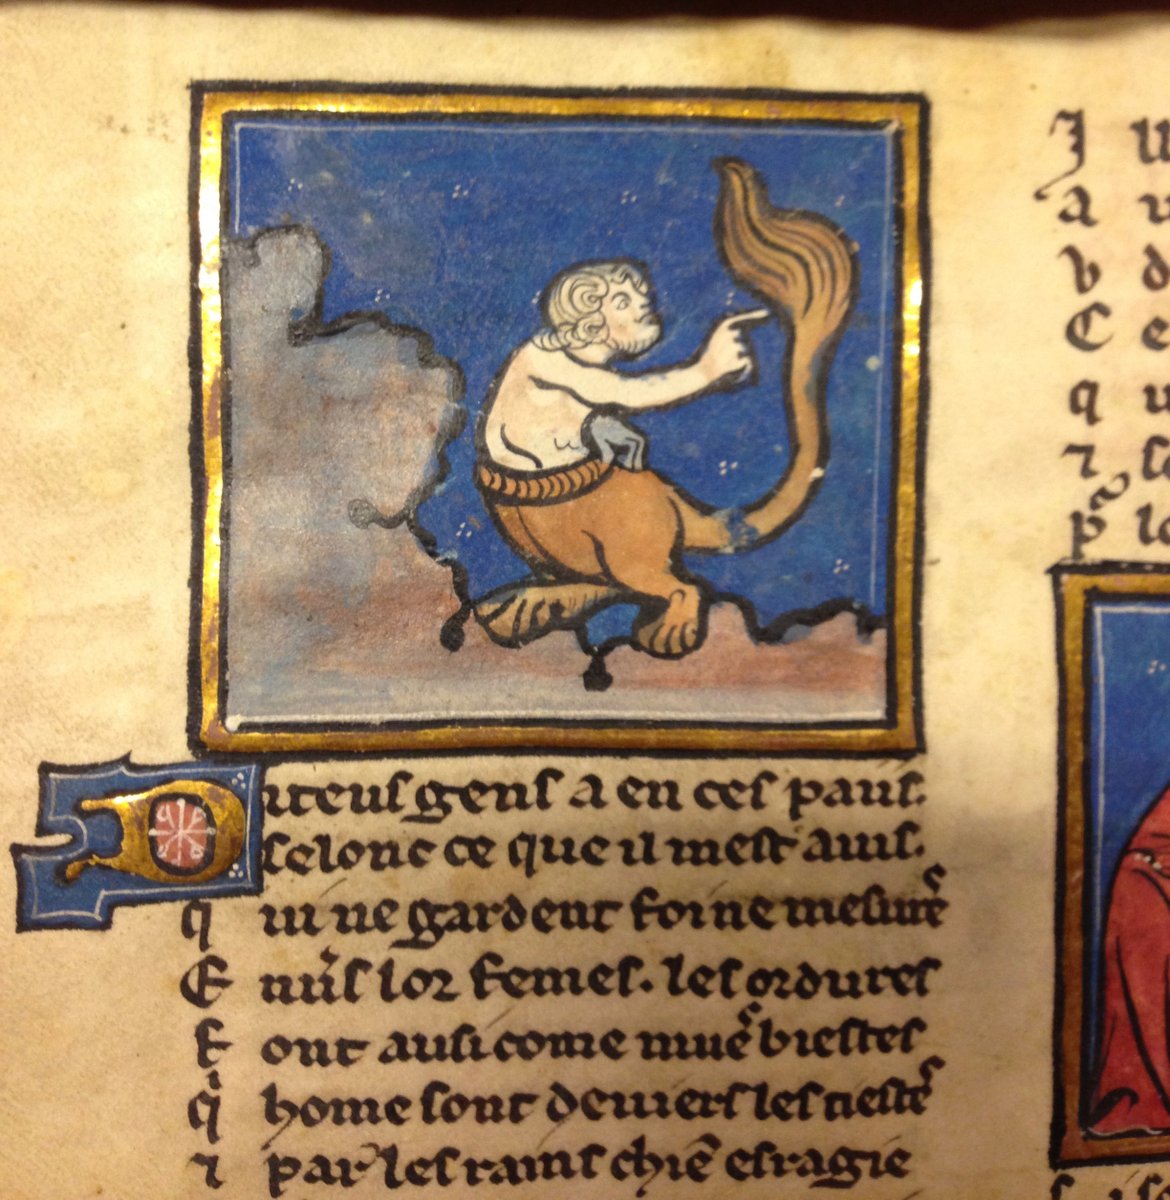 Diteus gens a en ces pais.
selonc ce que il mest auis.
q ui ne gardent foi ne mesure
E nũs lor femes. les ordures
f ont ausi come mue biestes
q̃ home sont deuiers les tiestes
⁊ par les rains chiẽ esragie
J
a
v d
C e
q u
⁊ se
p̃ le